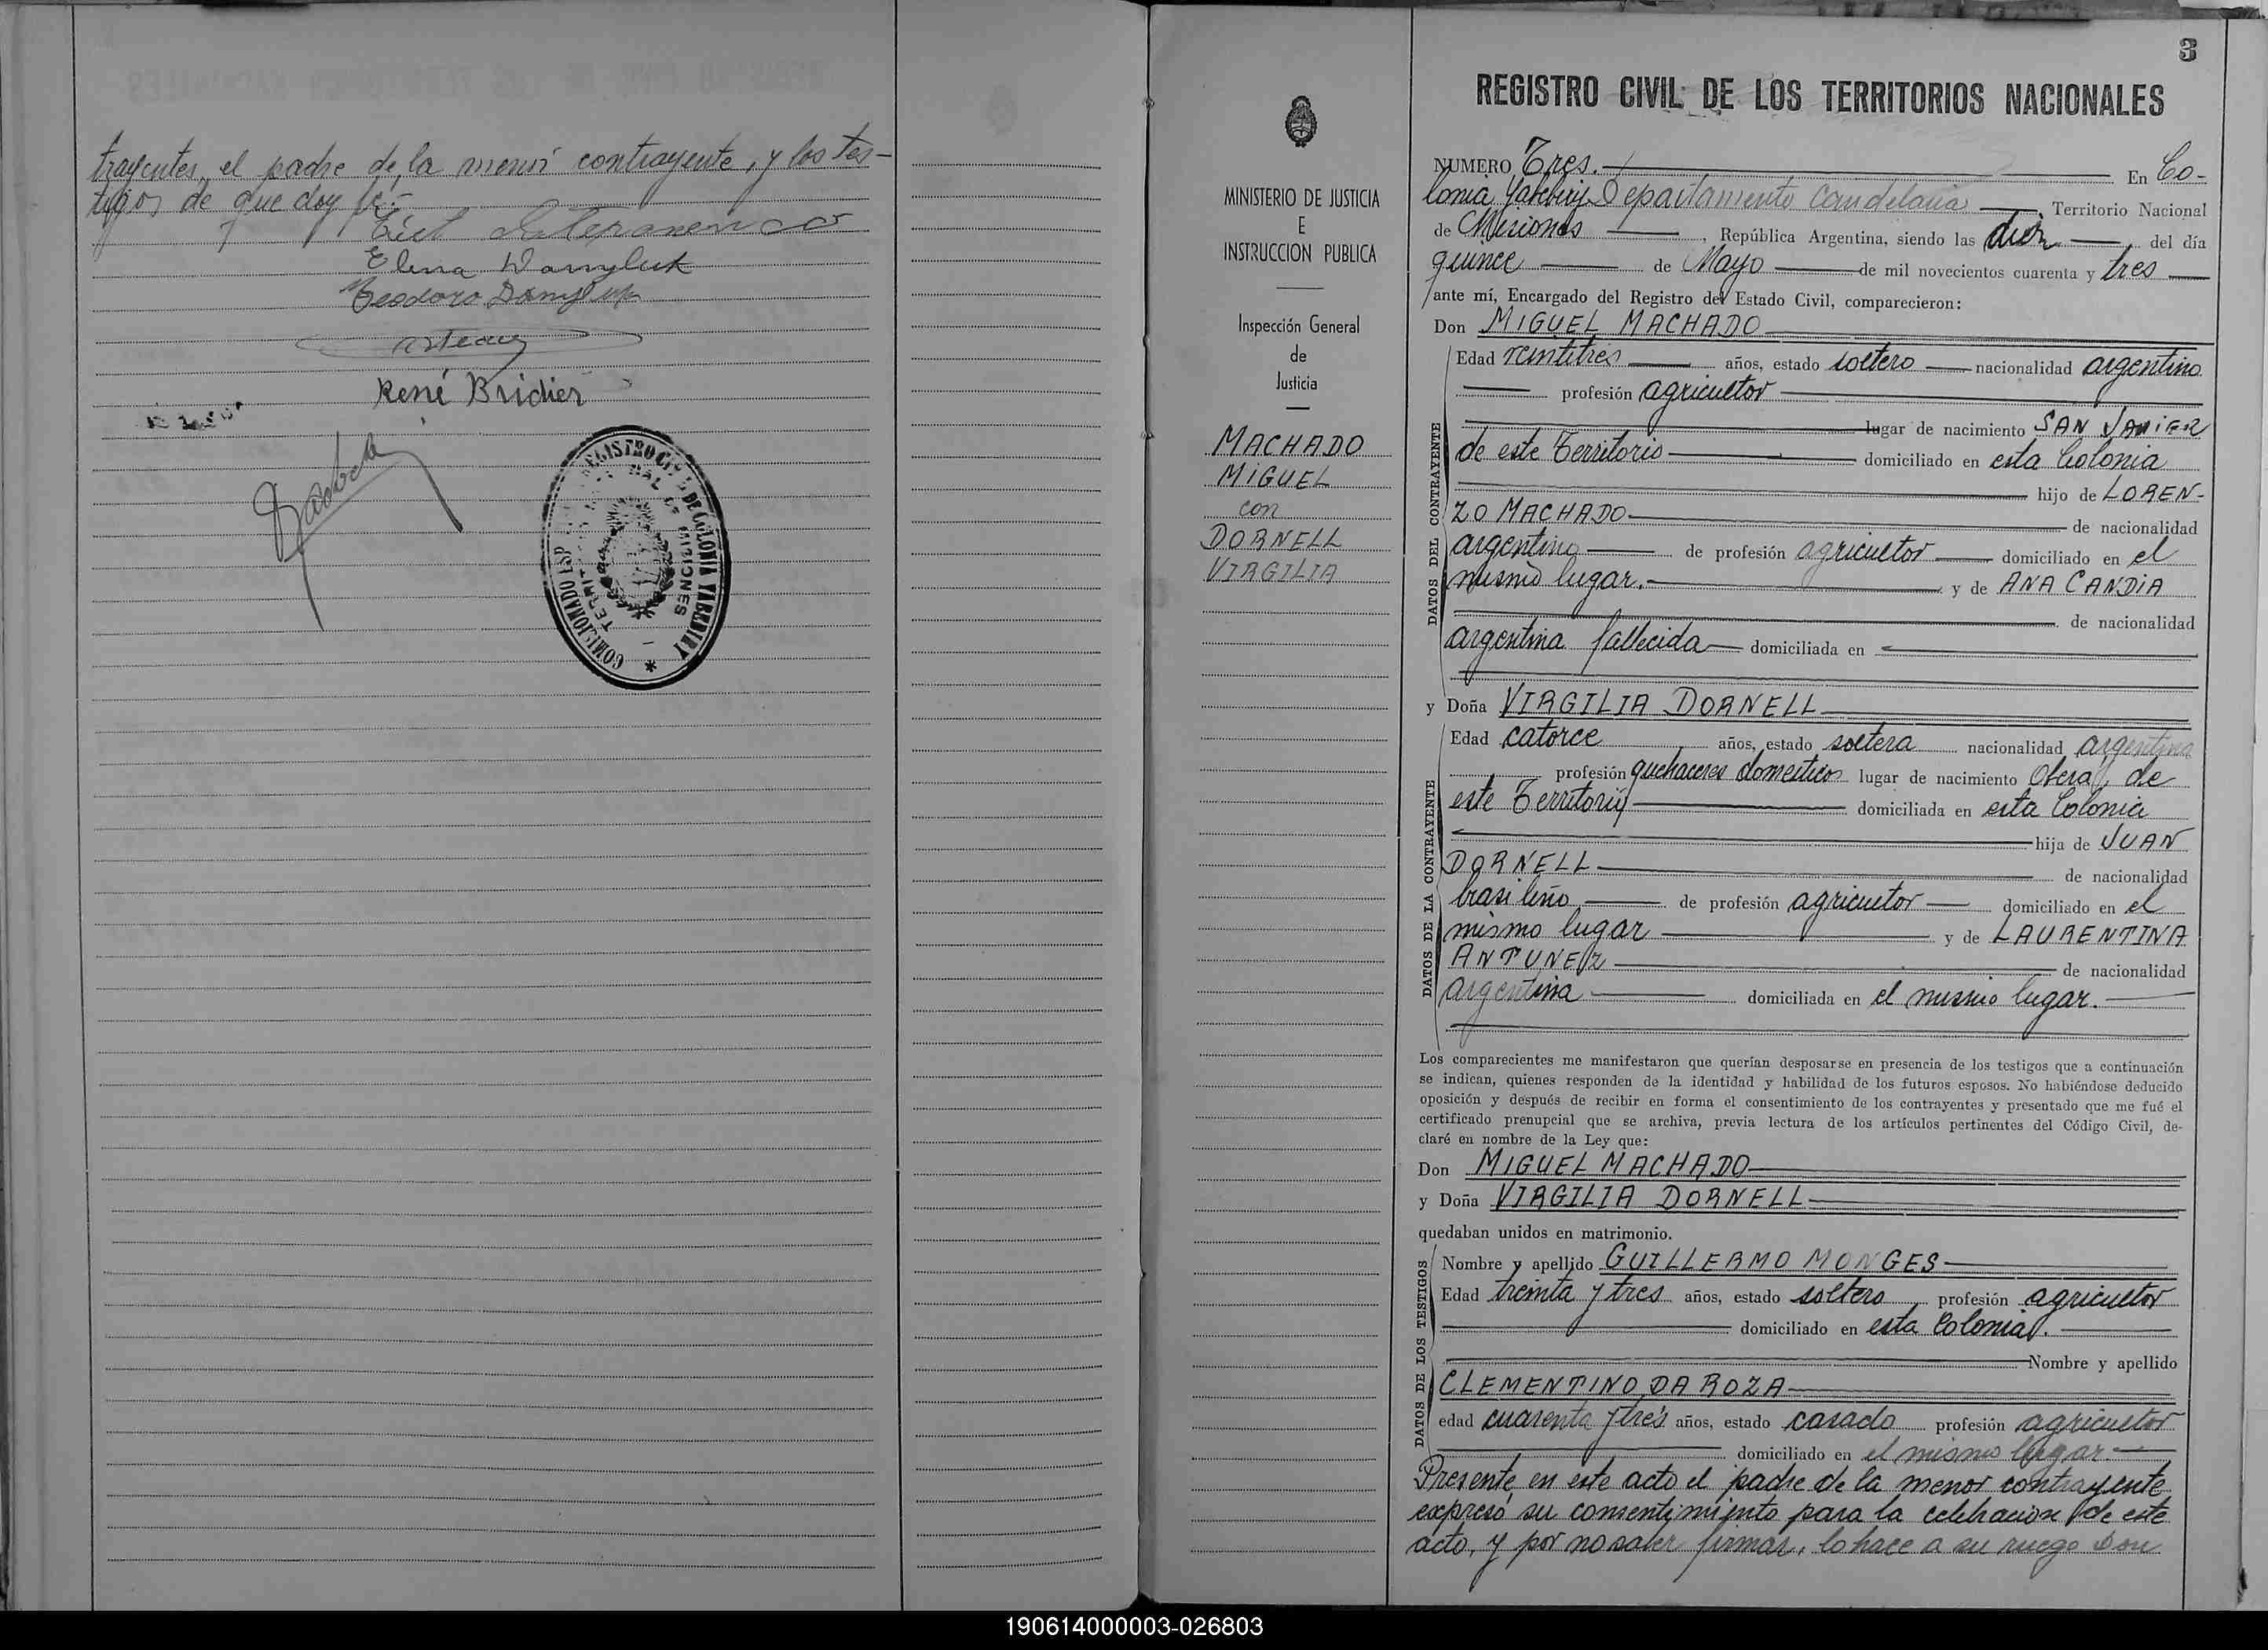 trayentes, el padre de la menor contrayente, y los tes-
tigos de que doy fé.-
Elena Danyluk
Teodoro Danyluk
René Bridier
REGISTRO CIVIL DE COLONIA YABEBIRY
COMISIONADO ESP
MISIONES
3
REGISTRO CIVIL DE LOS TERRITORIOS NACIONALES
MINISTERIO DE JUSTICIA
E
INSTRUCCION PUBLICA
Inspección General
de
Justicia
MACHADO
MIGUEL
con
DORNELL
VIRGILIA
NUMERO Tres. En Co-
lonia Yabebiry Departamento Candelaria Territorio Nacional
de Misiones, República Argentina, siendo las diez del día
quince de Mayo de mil novecientos cuarenta y tres
ante mí, Encargado del Registro del Estado Civil, comparecieron:
Don MIGUEL MACHADO
DATOS DEL CONTRAYENTE
Edad veintitres años, estado soltero nacionalidad argentino
profesión agricultor
lugar de nacimiento SAN JAVIER
de este Territorio domiciliado en esta Colonia
hijo de LOREN-
ZO MACHADO de nacionalidad
argentino de profesión agricultor domiciliado en el
mismo lugar. y de ANA CANDIA
de nacionalidad
argentina fallecida domiciliada en
y Doña VIRGILIA DORNELL
DATOS DE LA CONTRAYENTE
Edad catorce años, estado soltera nacionalidad argentina
profesión quehaceres domesticos lugar de nacimiento Obera, de
este Territorio domiciliada en esta Colonia
hija de JUAN
DORNELL de nacionalidad
brasileño de profesión agricultor domiciliado en el
mismo lugar y de LAURENTINA
ANTUNEZ de nacionalidad
argentina domiciliada en el mismo lugar.
Los comparecientes me manifestaron que querían desposarse en presencia de los testigos que a continuación
se indican, quienes responden de la identidad y habilidad de los futuros esposos. No habiéndose deducido
oposición y después de recibir en forma el consentimiento de los contrayentes y presentado que me fué el
certificado prenupcial que se archiva, previa lectura de los artículos pertinentes del Código Civil, de-
claré en nombre de la Ley que:
Don MIGUEL MACHADO
y Doña VIRGILIA DORNELL
quedaban unidos en matrimonio.
DATOS DE LOS TESTIGOS
Nombre y apellido GUILLERMO MONGES
Edad treinta y tres años, estado soltero profesión agricultor
domiciliado en esta Colonia.
Nombre y apellido
CLEMENTINO DA ROZA
edad cuarenta y tres años, estado casado profesión agricultor
domiciliado en el mismo lugar.
Presente en este acto el padre de la menor contrayente
expresó su consentimiento para la celebracion de este
acto, y por no saber firmar, lo hace a su ruego Don
190614000003-026803